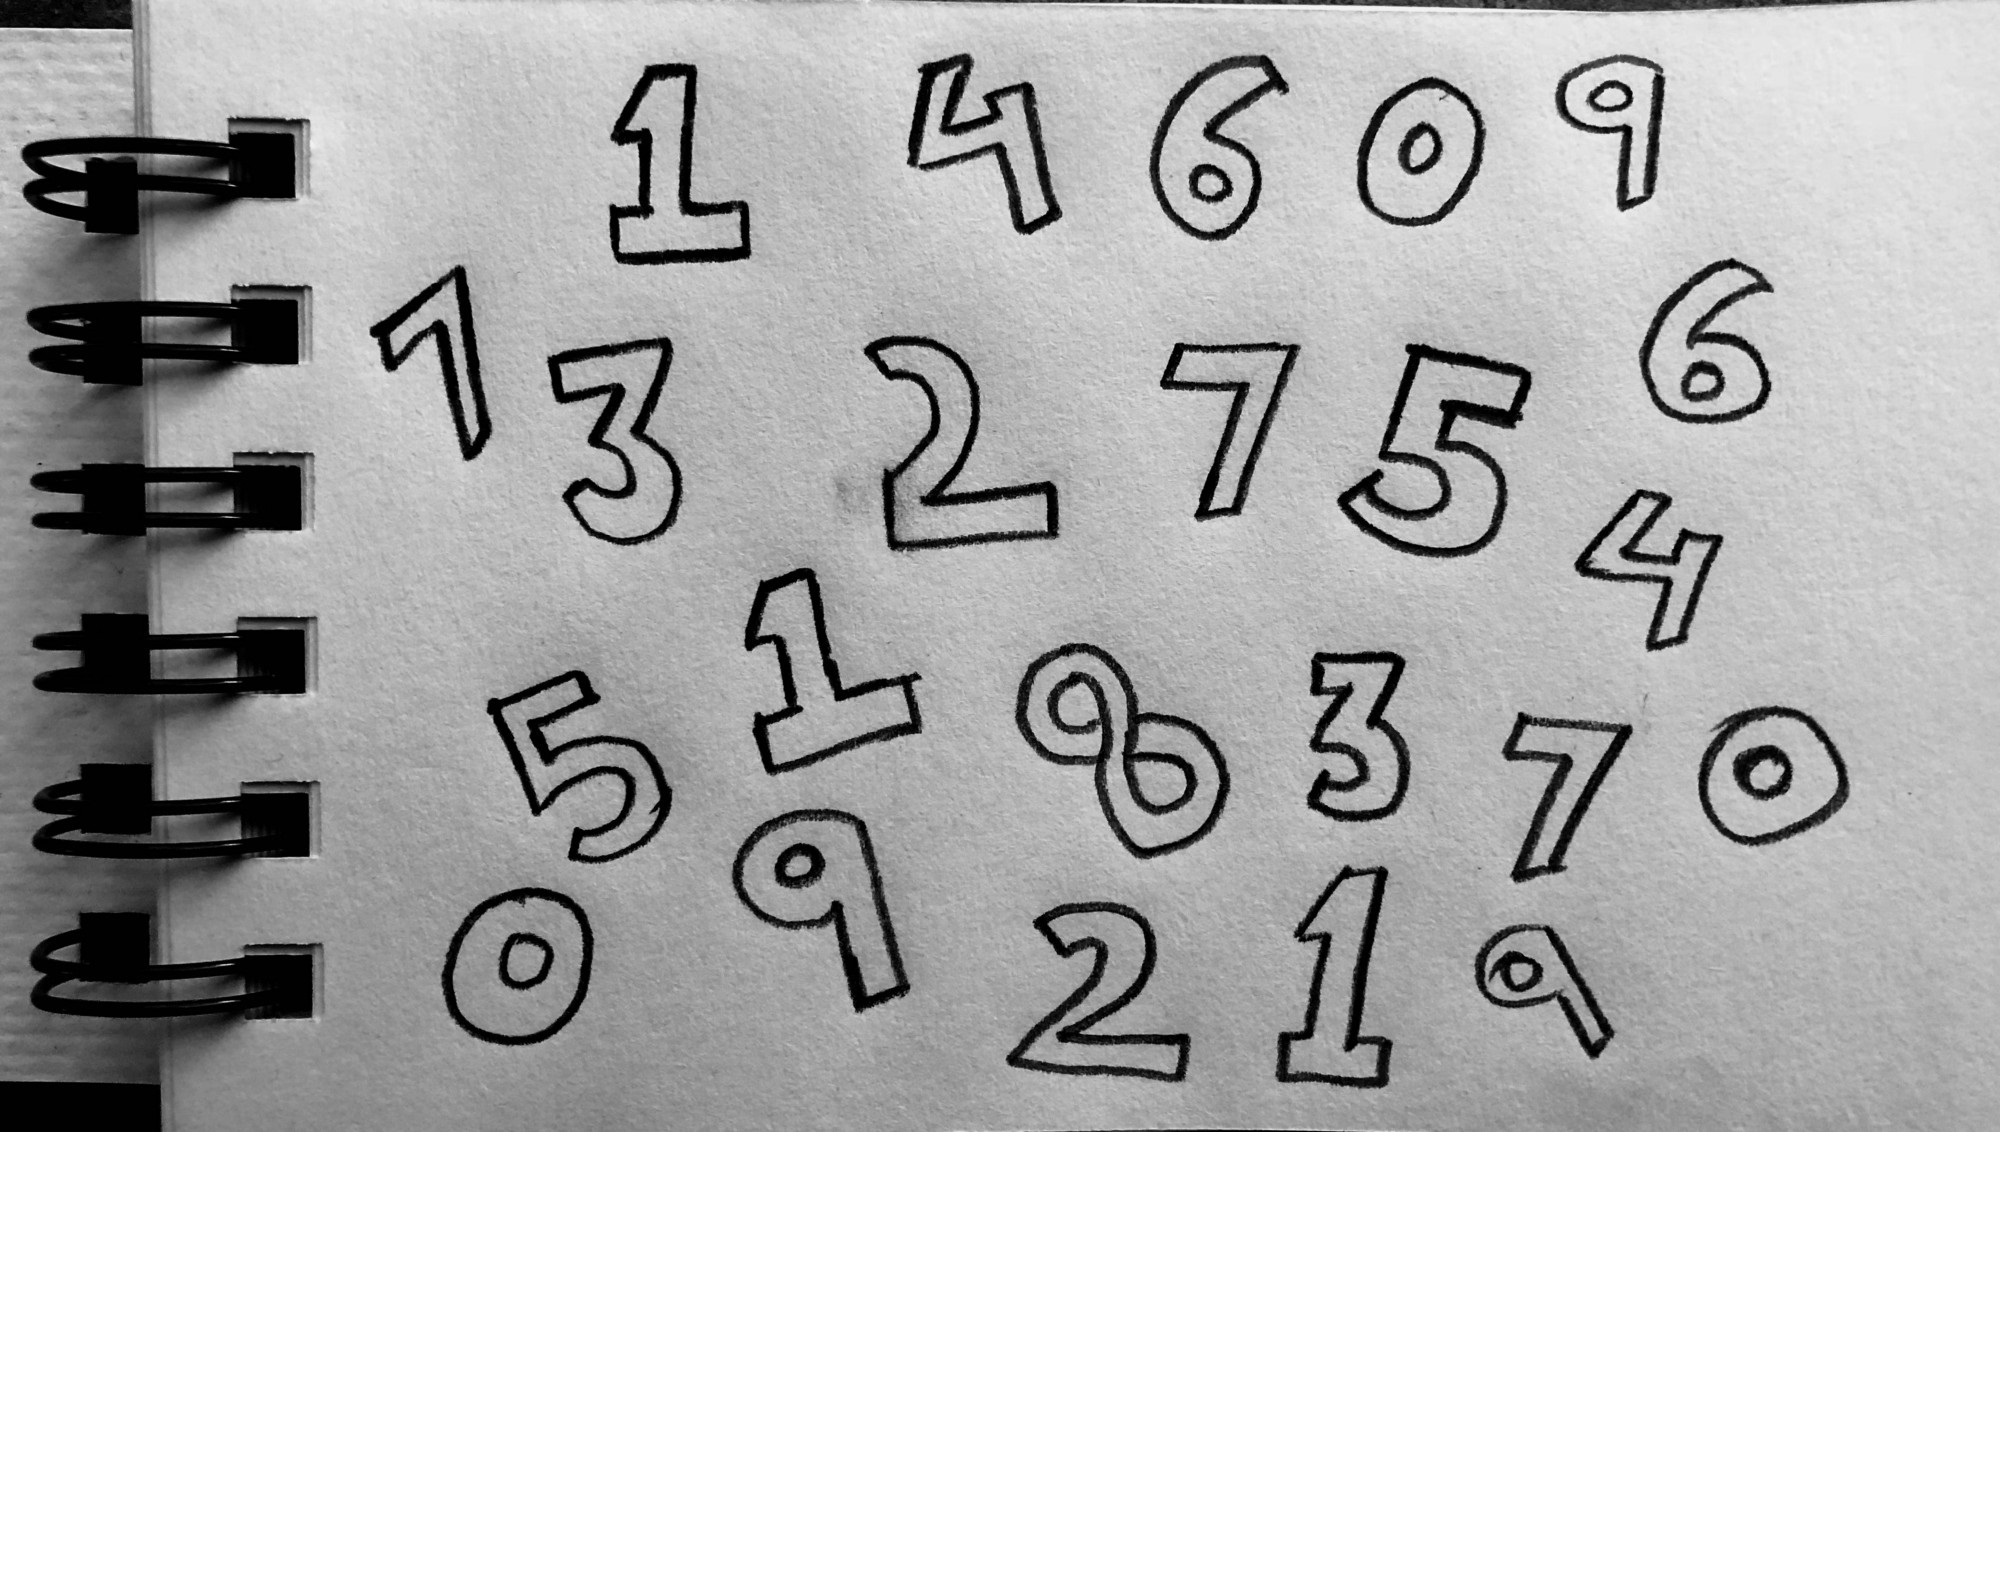 1 4 6 0 9
1 3 2 7 5 6
4
5 1 8 3 7 0
0 9 2 1 9